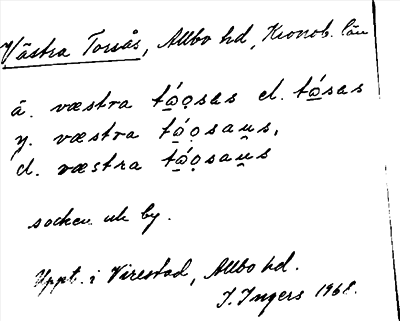 Västra Torsås, Allbo hd, Kronob. län
ä. væstra tǫ́o̜sas el. tǫ́sas
y. væstra tǫ́o̜sau̯s,
d. væstra tǫ́o̜sau̯s
socken och by.
Uppt. i Virestad, Allbo hd.
I. Ingers 1968.